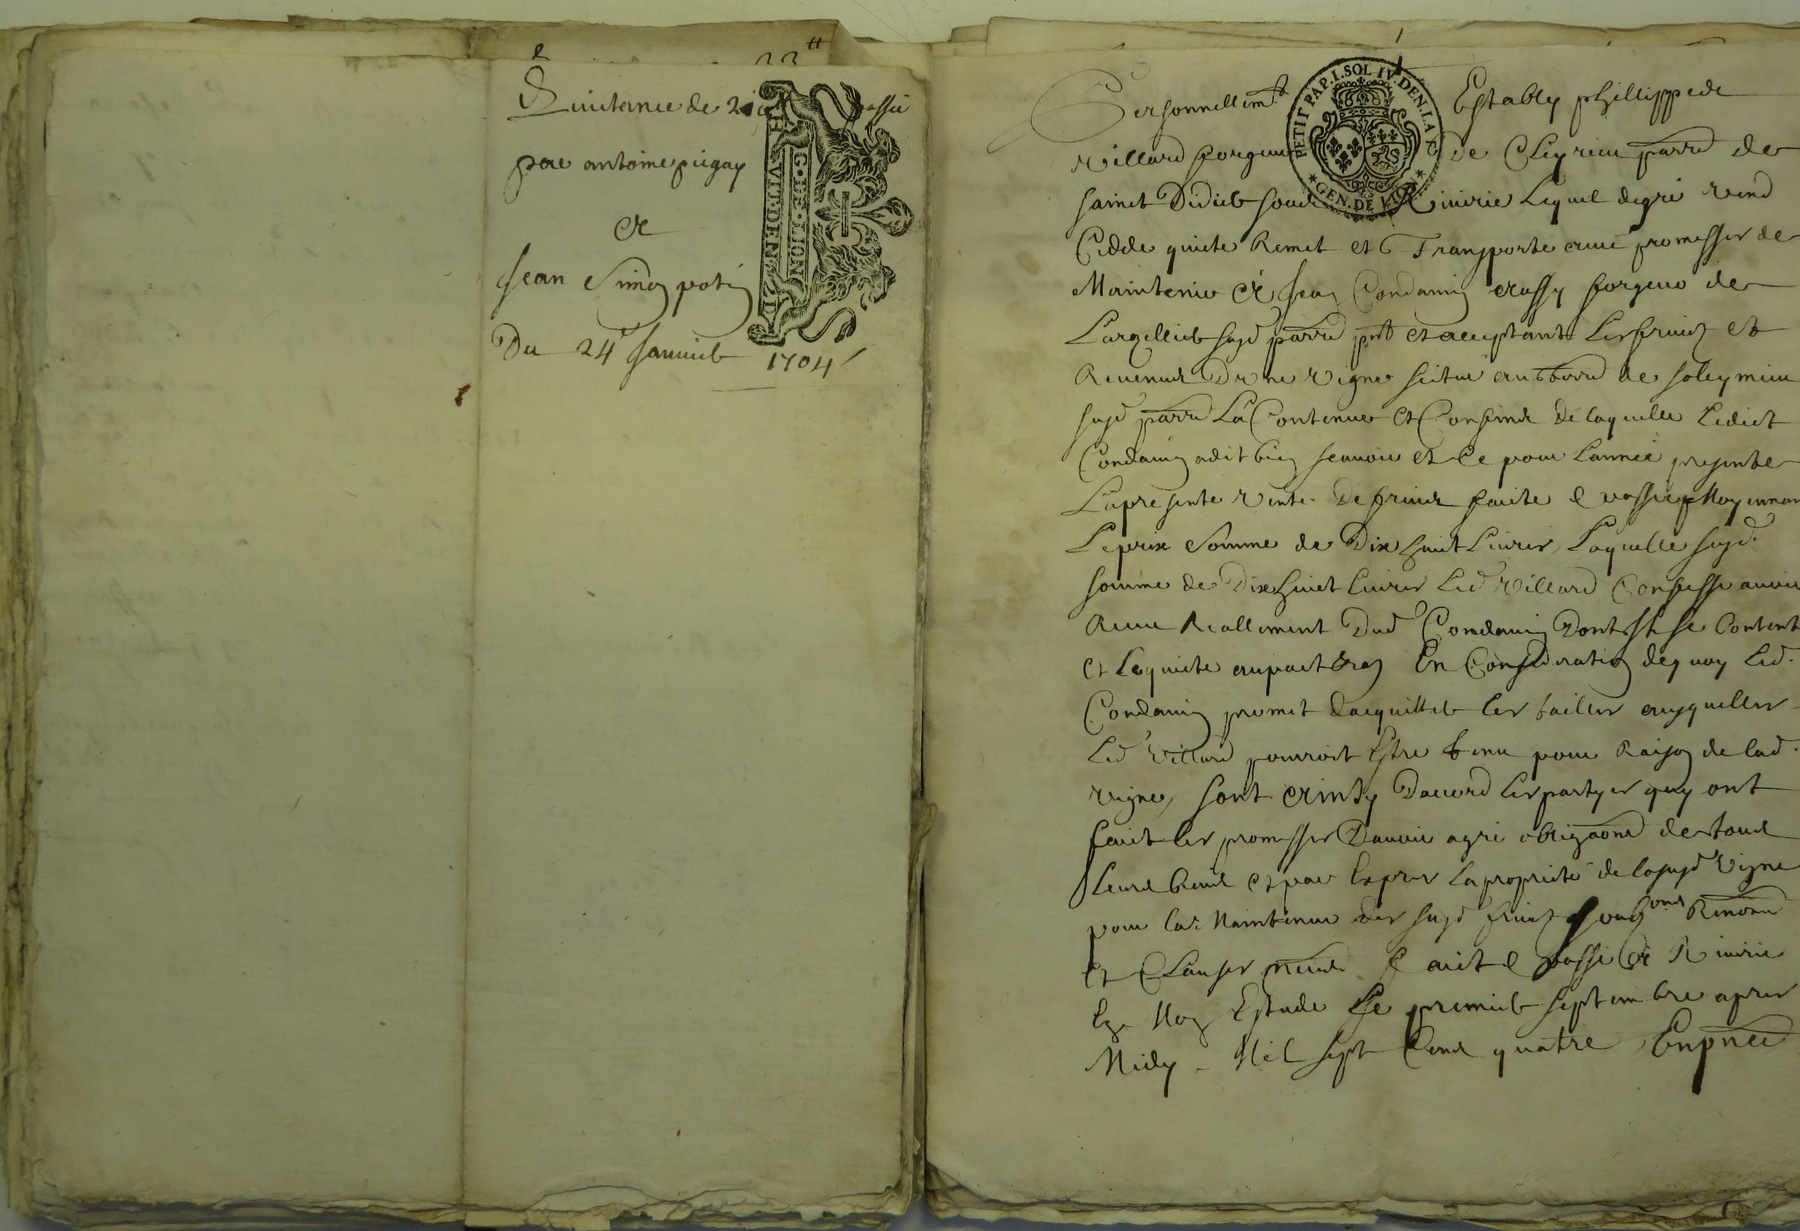 22tt
Quittance de 2 passée
par antoine pugay
A
Jean Simon potin
Du 24e Janvier 1704
G. DE LION
HVIT DEN
PETIT PAP. I. SOL IV. DEN. LA F.
GEN. DE LION
Personnellemt Estably phillippe de
Villard forgeur de Cleyrieu parre de
sainct Didier soubz Riverie Lequel degré vend
Cedde quicte Remet et Transporte avec promesses de
Maintenir A Jean Condamin aussy forgeur de
Largellier susd parre pnt et acceptant Les fruictz et
Revenus D'une vigne scitue au terre de soleymieu
susd parre La Contenue et Confins de laquelle Ledict
Condamin a dit bien scavoir et Ce pour Lannée presente
La presente vente de fruicts faicte e passée Moyennan
Le prix e somme de Dix huict Livres, Laquelle susd.
somme de Dix huict livres Led Villard Confesse avoir
Receu Reallement Dud Condamin Dont Il se Content
et Lequicte En Consideration dequoy Led.
Condamin promet dacquitter les tailles auxquelles
Led Villard pourroit Estre tenu pour Raison de lad.
vigne, sont Ainsy Daccord les partyes quy ont
faict les promesses Davoir agré obligaons de tous
Leurs biens et par Exprès La propriété de la susd Vigne
pour la Maintenue des susd fruictz soubons Renons
et Clauses faict e passé A Riverie
En Mon Estude Le premier septembre apres
Midy. Mil sept Cens quatre En pnce